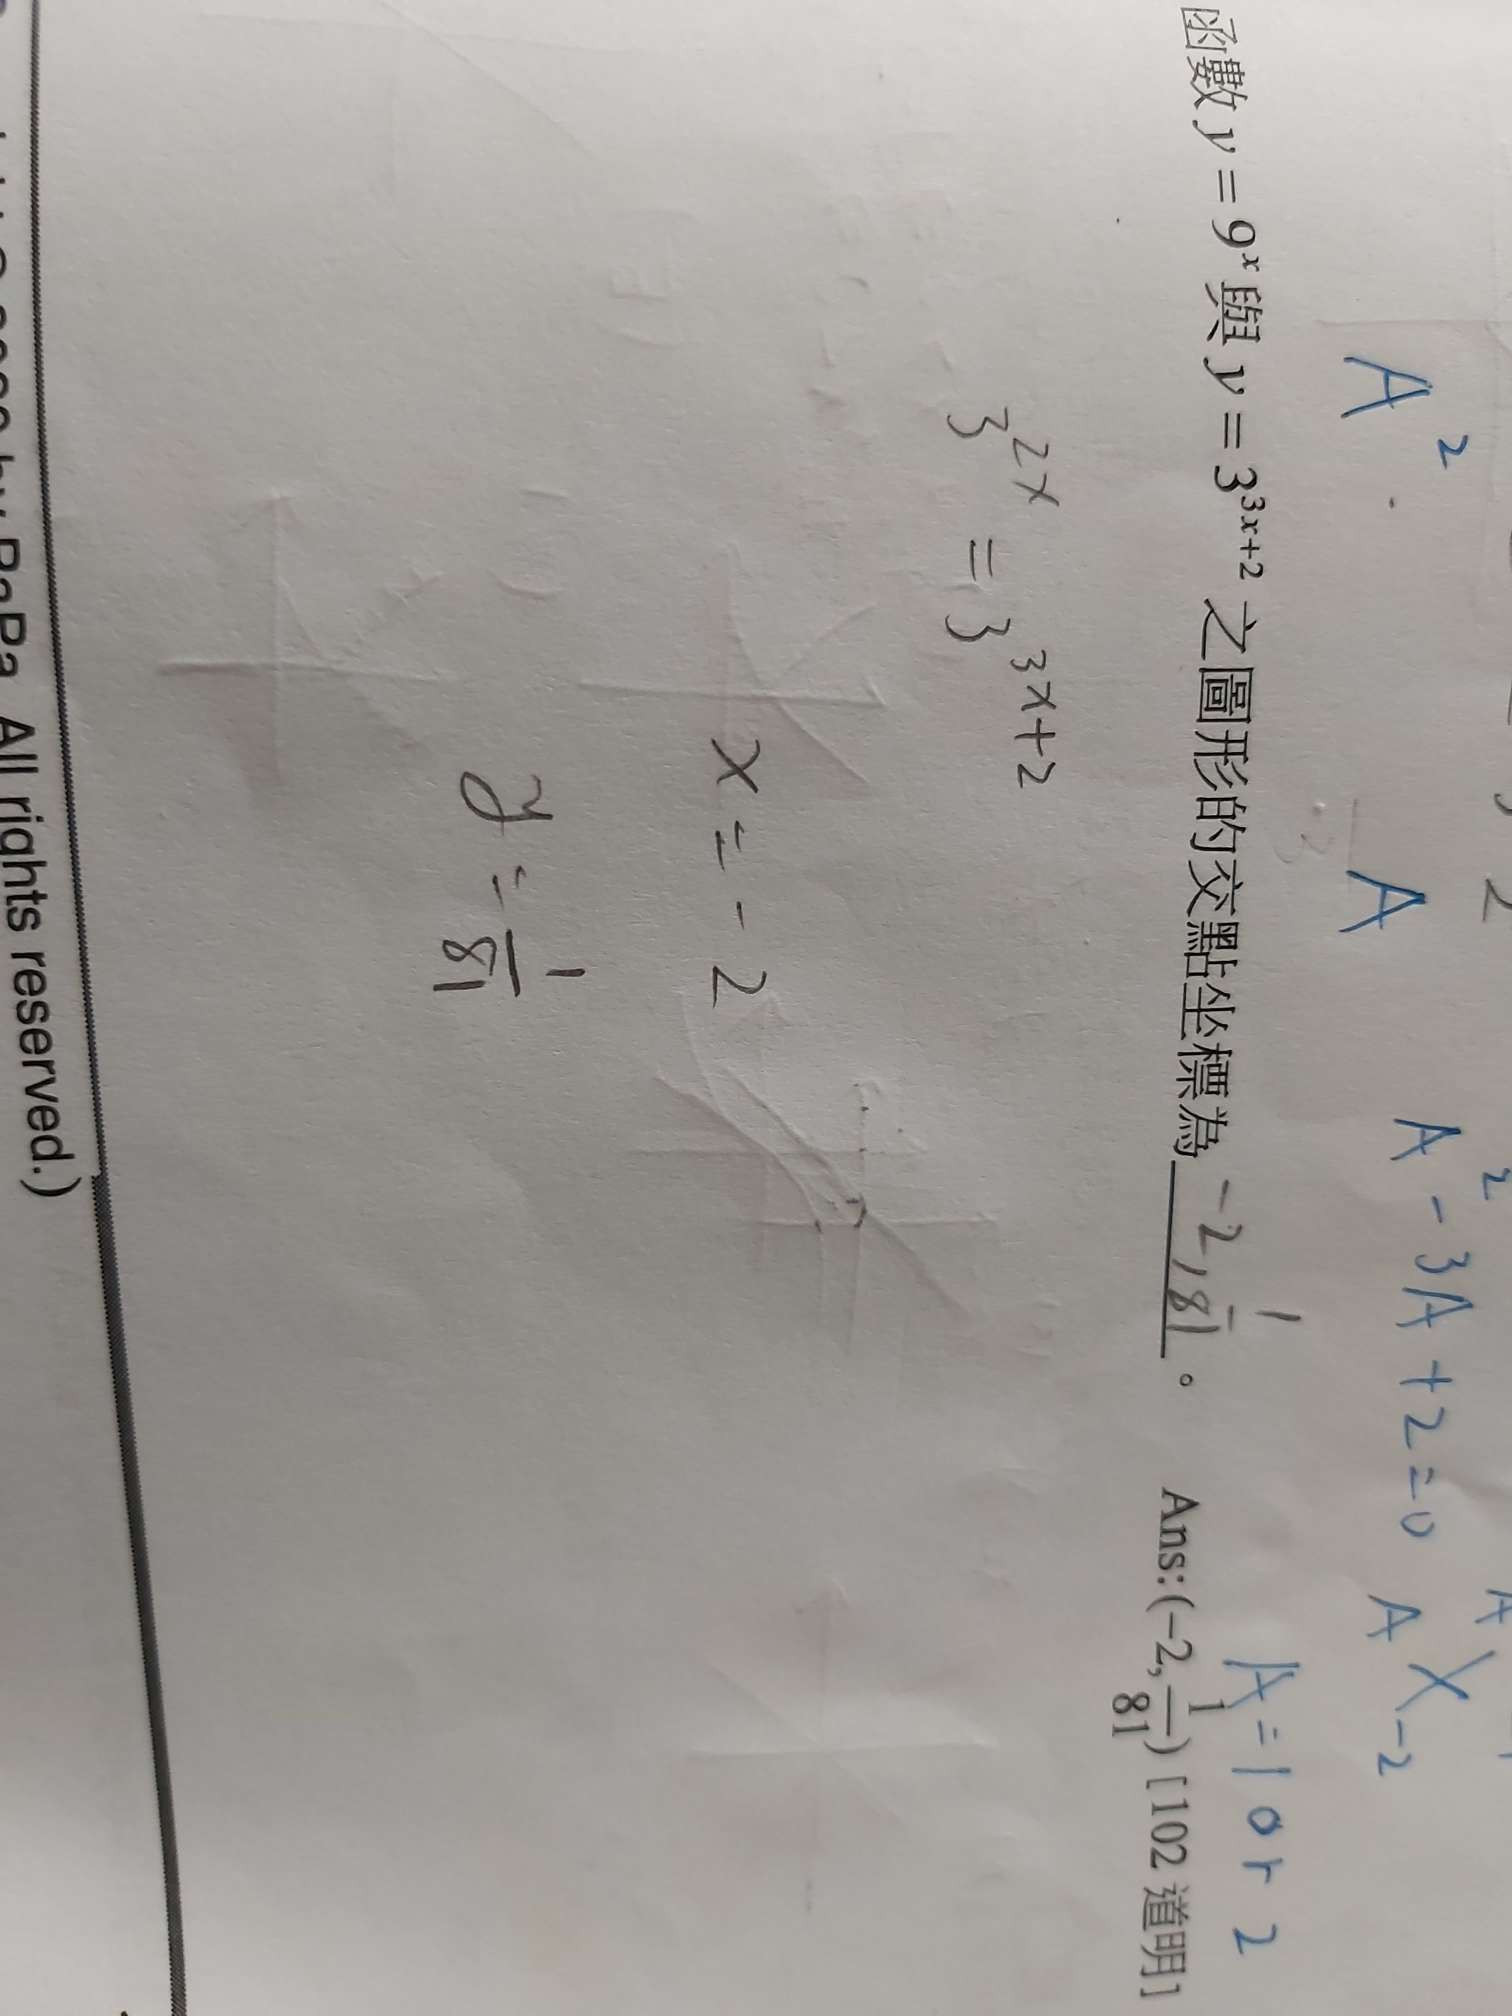 A² A A² - 3A + 2 = 0 A -2
A = 1 or 2
函數 y = 9ˣ 與 y = 3³ˣ⁺² 之圖形的交點坐標為 -2, 1/81 。 Ans:(-2, 1/81) [102 道明]
3²ˣ = 3³ˣ⁺²
x = -2
y = 1/81
All rights reserved.)